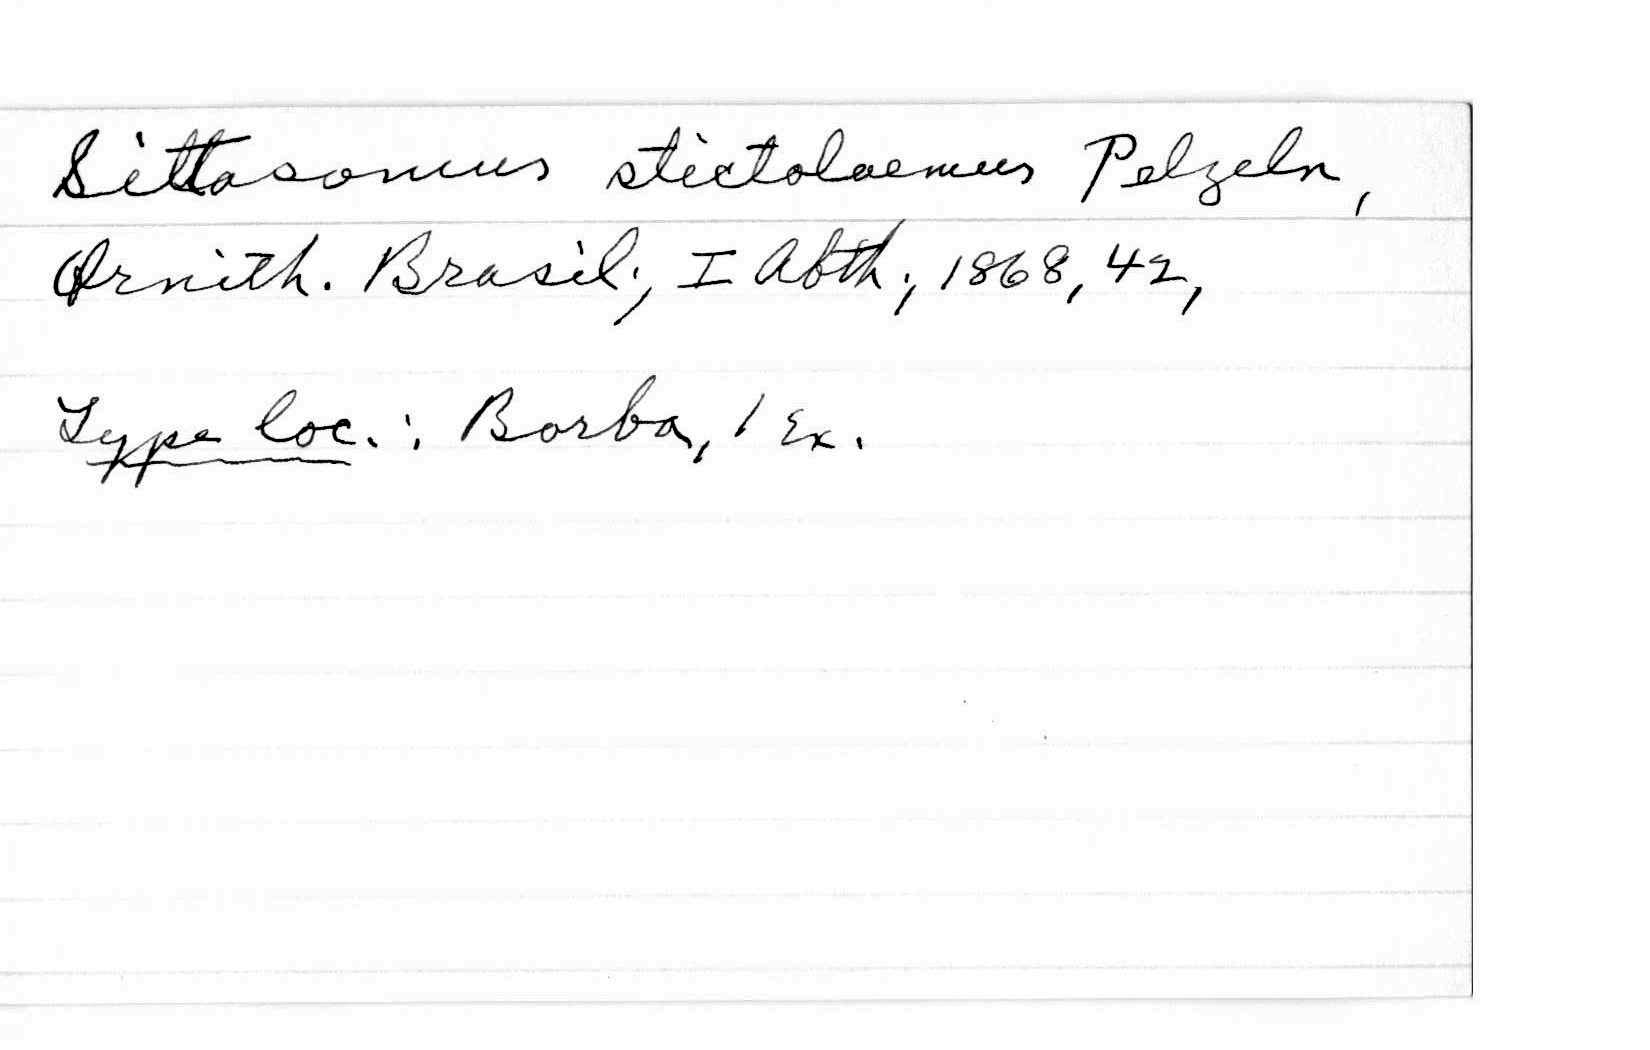 Sittasomus stictolaemus Pelzeln,
Ornith. Brasil., I Abth., 1868, 42,
Type loc.: Borba, 1 Ex.